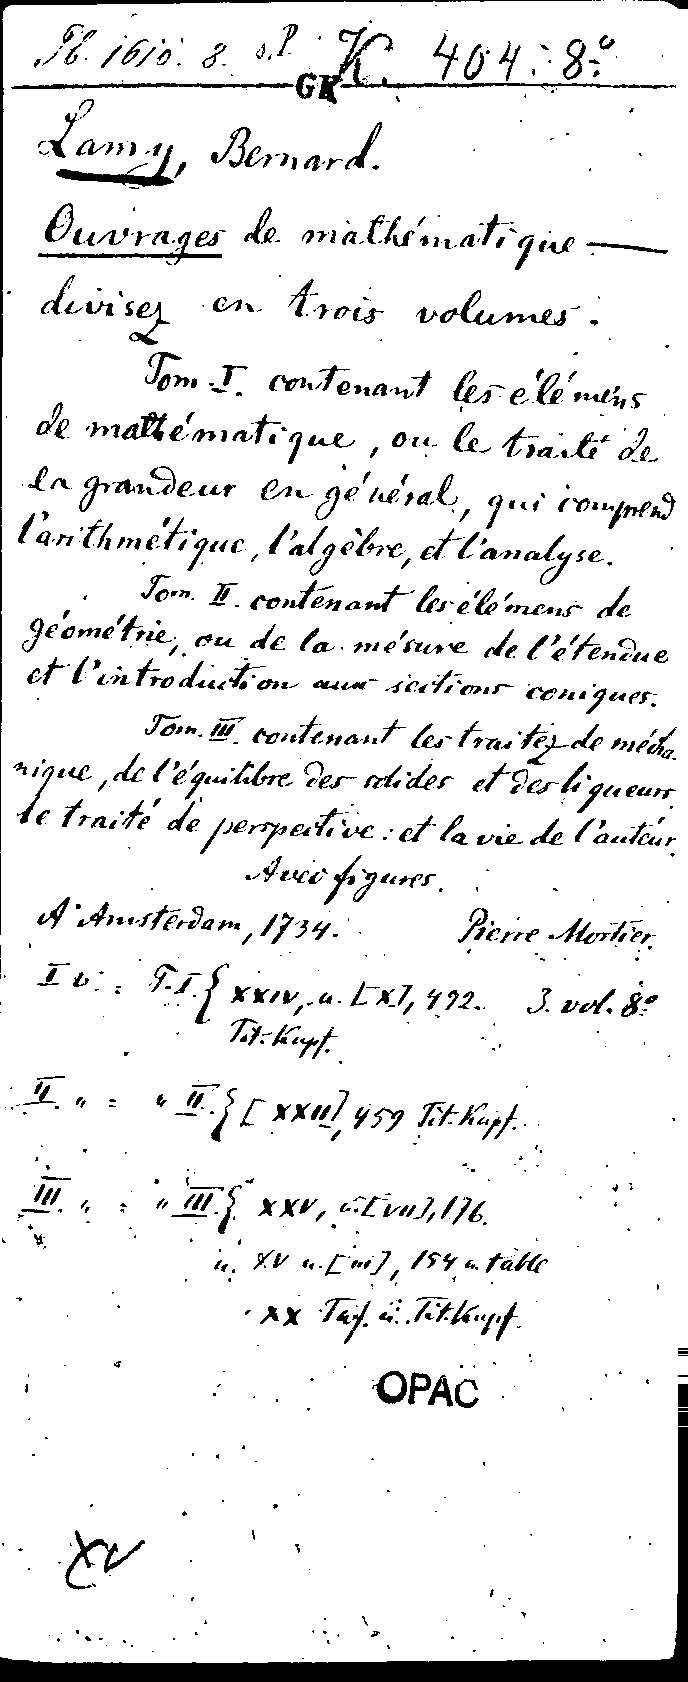 Pb. 1610. 8. s.P. K. 404. 8º
GK
Lamy, Bernard.
Ouvrages de mathématique —
divisez en trois volumes.
Tom. I. contenant les élémens
de mathématique, ou le traité de
la grandeur en général, qui comprend
l'arithmétique, l'algèbre, et l'analyse.
Tom. II. contenant les élémens de
géométrie, ou de la mésure de l'étendue
et l'introduction aux sections coniques.
Tom. III. contenant les traitez de mécha-
nique, de l'équilibre des solides et des liqueurs
le traité de perspective: et la vie de l'auteur.
Avec figures.
A Amsterdam, 1734. Pierre Mortier.
I v. = T. I. { XXIV, u. [X], 492. 3. vol. 8º
Tit. Kupf.
II. " = " II. } [XXII], 459 Tit. Kupf.
III. " = " III. } XXV, u. [VII], 176.
u. XV u. [III], 154 u. table
XX Taf. u. Tit. Kupf.
OPAC
XV